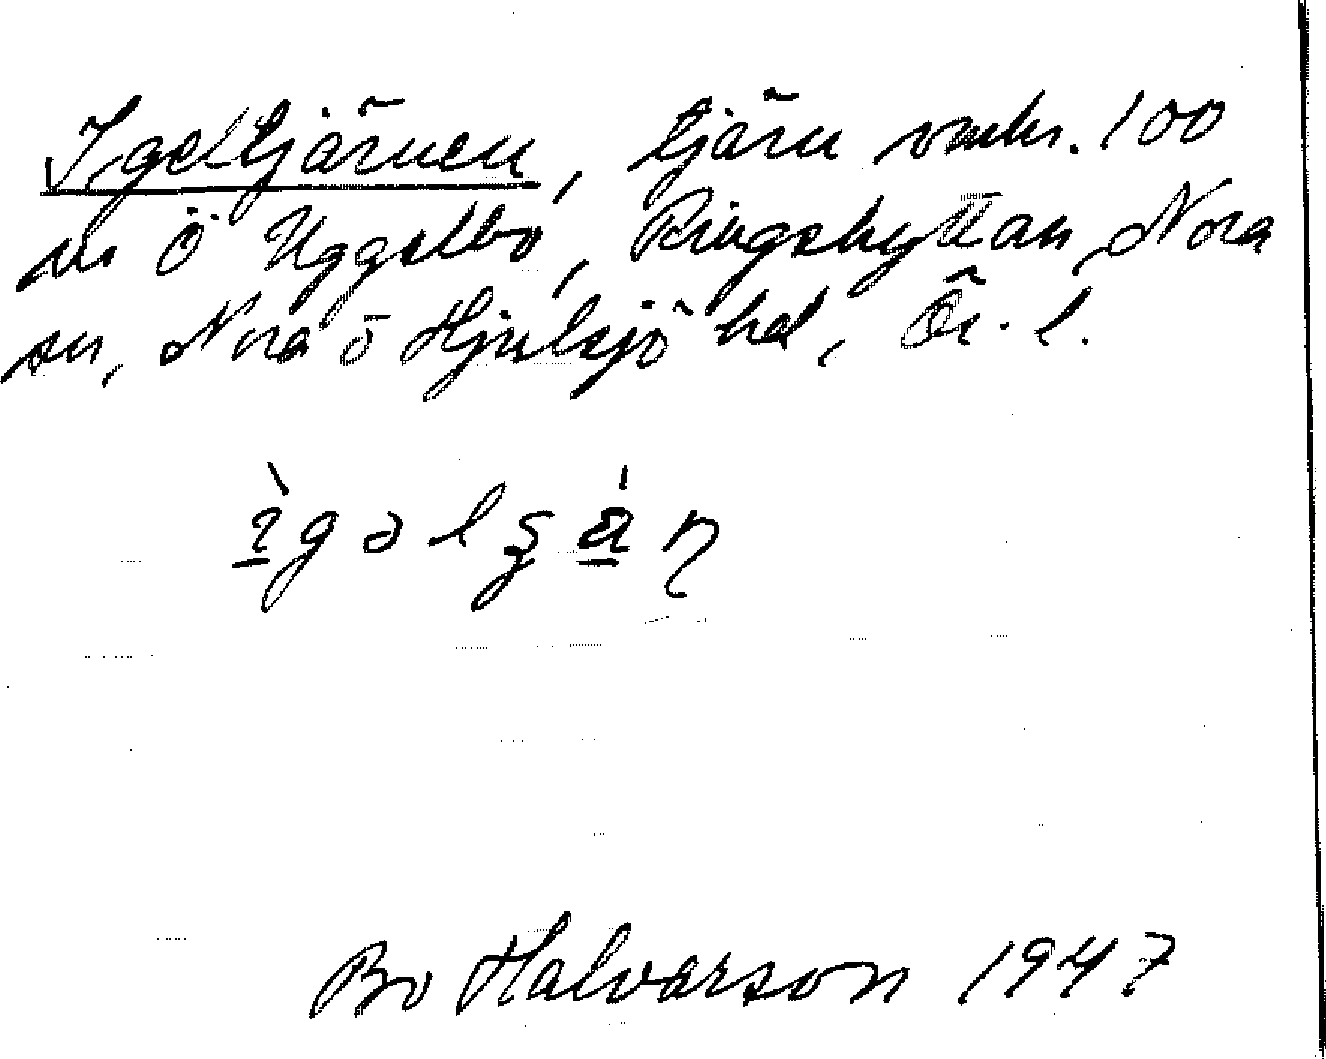 Igeltjärnen, tjärn omkr. 100
m Ö Uggelbo, Ringshyttan, Nora
sn, Nora o Hjulsjö hd, Ör. l.
ìgəlʂä́ṇ
Bo Halvarson 1947